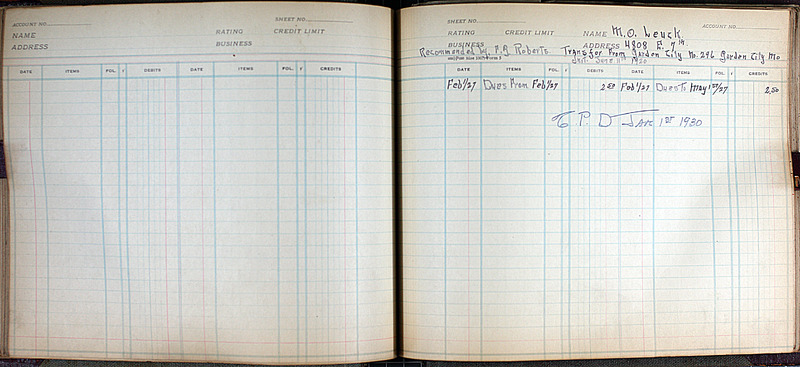 SHEET NO.
ACCOUNT NO.
NAME RATING CREDIT LIMIT
ADDRESS BUSINESS
DATE ITEMS FOL. √ DEBITS DATE ITEMS FOL. √ CREDITS
SHEET NO.
ACCOUNT NO.
RATING CREDIT LIMIT NAME M.O. Leuck.
BUSINESS ADDRESS 4808 E 7th
Recommended by F.G. Roberts Transfer From Garden City No. 296 Garden City Mo
Init. June 11th 1920
DATE ITEMS FOL. √ DEBITS DATE ITEMS FOL. √ CREDITS
Feb 1/27 Dues From Feb 1/27 2 50 Feb 1/27 Dues to May 1st/27 2,50
T P D Jan 1st 1930